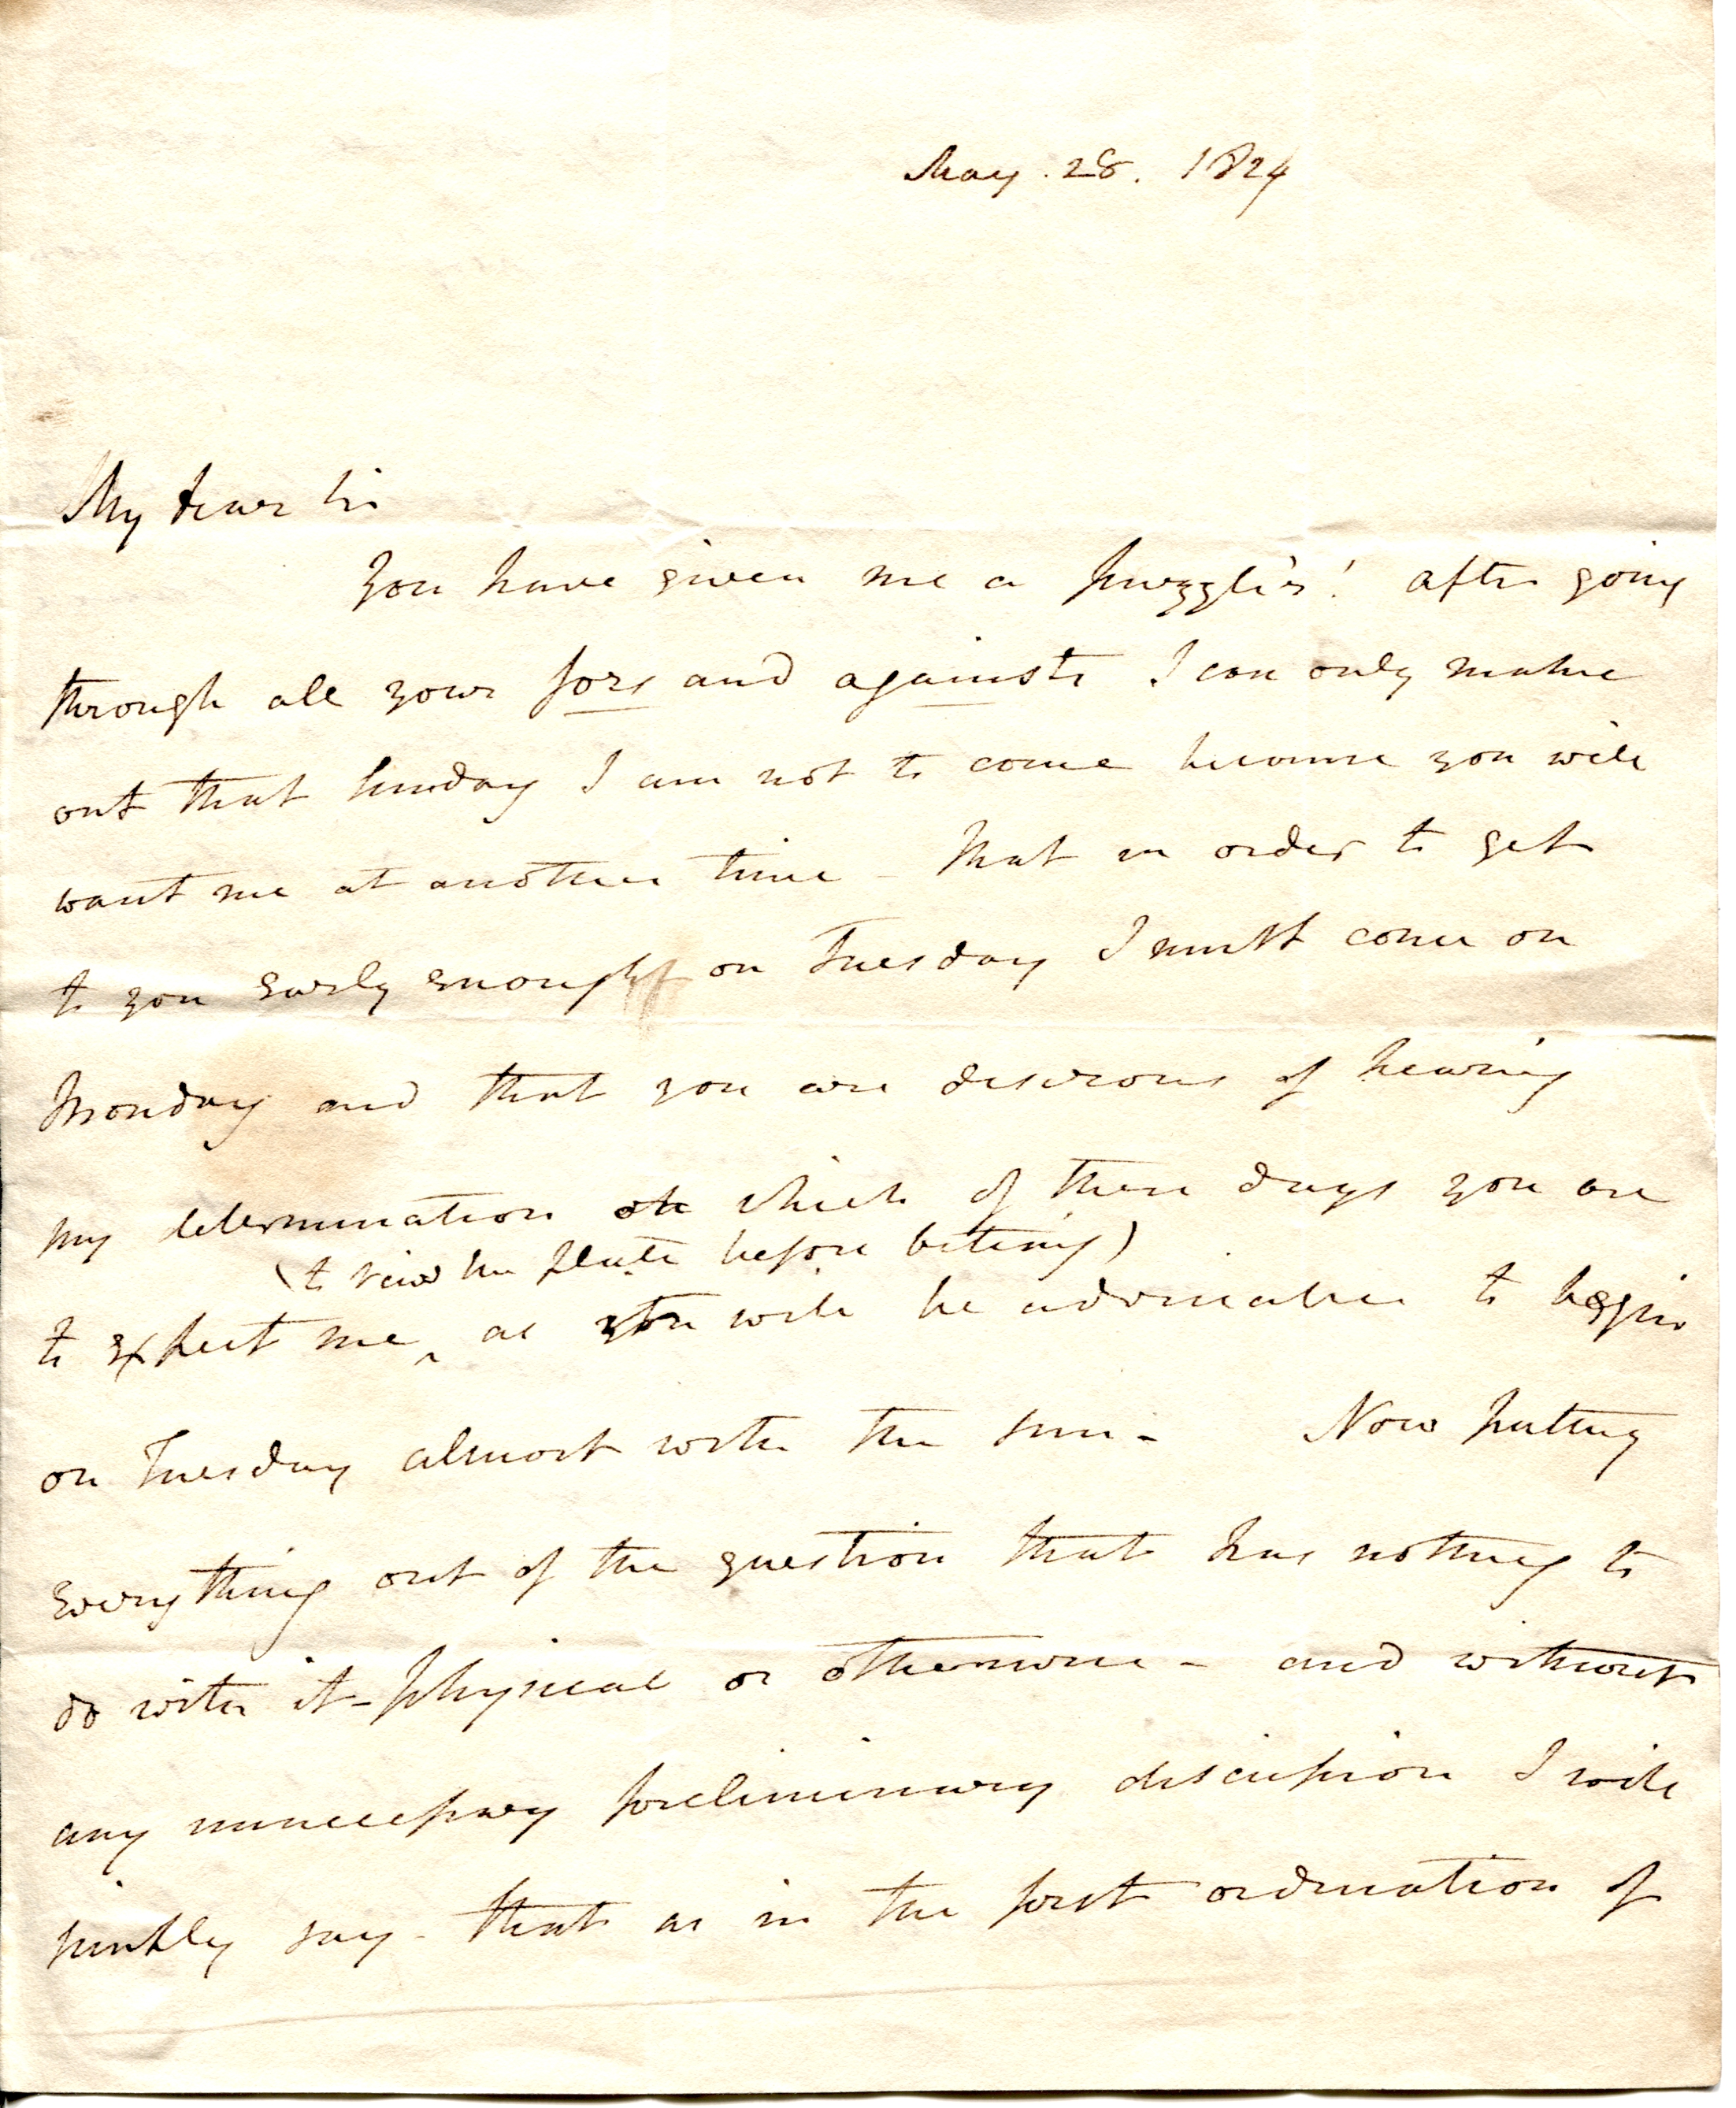 May. 28. 1824
My dear Sir
You have given me a puzzler! after going
through all your fors and againsts I can only make
out that Sunday I am not to come because you will
want me at another time - that in order to get
to you early enough on Tuesday I must come on
Monday and that you are desirous of hearing
my determination on which of these days you are
(to view the plate before biteing)
to expect me, as it will be adviseable to begin
on Tuesday almost with the sun - Now putting
everything out of the question that has nothing to
do with it - physical or otherwise - and without
any unnecessary preliminary discussion I will
simply say - that as in the first ordination of